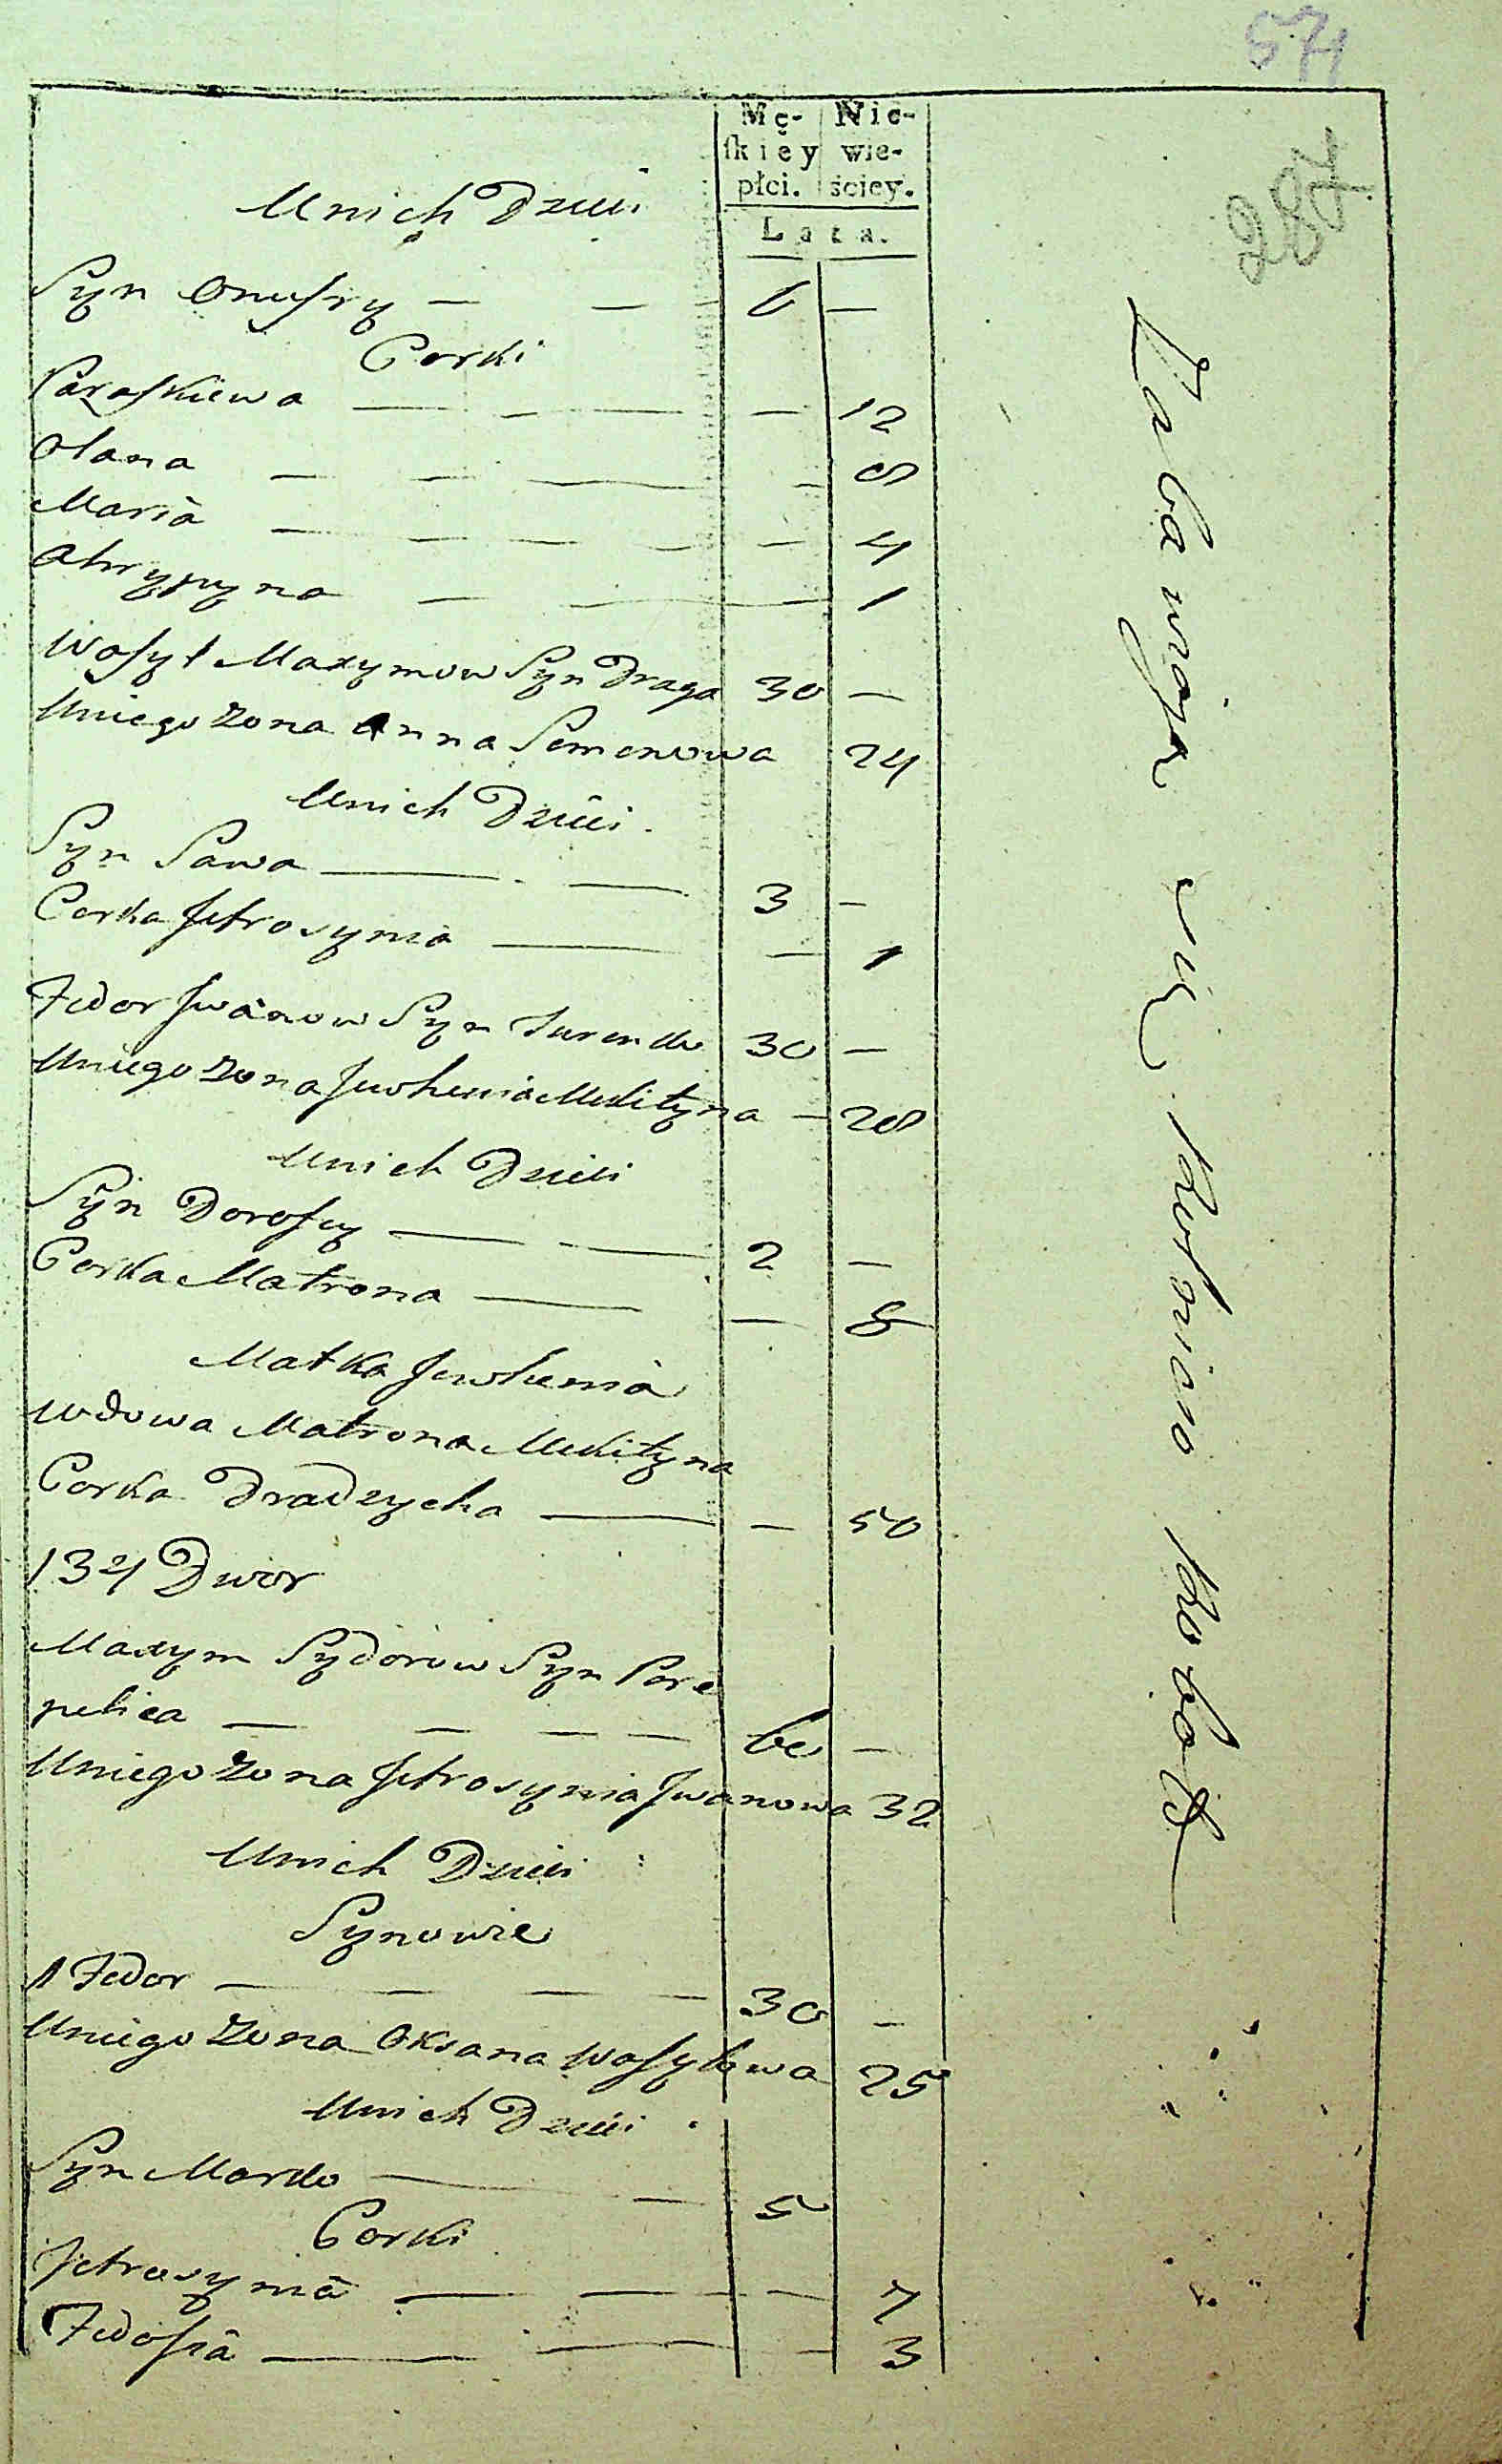 571
287
Mę- Nie-
ſkiey wie-
płci. ściey.
Lata.
Unich Dzieci
Syn Onufry — — 6 —
Corki
Paraskiewa — — — — 12
Olana — — — — 8
Maria — — — — — 4
Ahrypyna — — 1
Wasyl Maxymow Syn Draga 30 —
Uniego Zona Anna Semenowa 24
Unich Dzieci
Syn Sawa — — 3 —
Corka Jetrosynia — — 1
Fedor Jwanow Syn 30 —
Uniego Zona Jewhenia Mikityna — 28
Unich Dzieci
Syn Dorofey — — 2 —
Corka Matrona — — 8
Matka Jewhenia
Wdowa Matrona Mikityna
Corka Dradzycha — — 50
134 Dwor
Maxym Sydorow Syn Pere
pelica — — — — 60 —
Uniego Zona Jetrosynia Jwanowa 32
Unich Dzieci
Synowie
1 Fedor — — — — 30 —
Uniego Zona Oksana Wasylowa 25
Unich Dzieci
Syn Marko — — 5
Corki
Jetrosynia — — — — 7
Fedosia — — — 3
Zabawiają się robotą